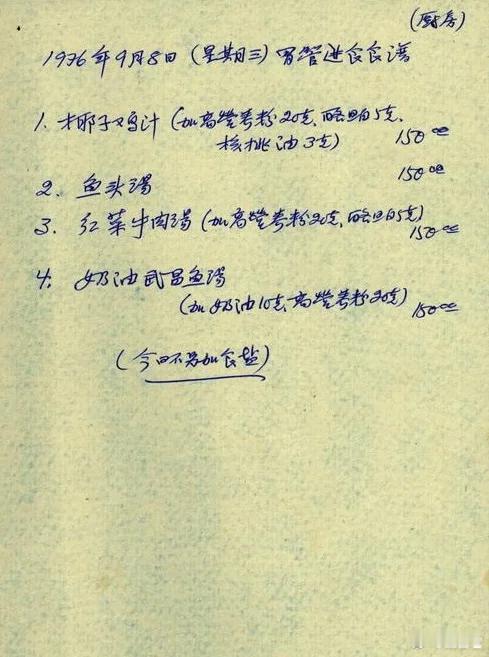 (厨房)
1976年9月8日 (星期三) 胃管进食食谱
1. 椰子鸡汁 (加高营养粉20克, 酪旦白5克,
核桃油3克) 150cc
2. 鱼头汤 150cc
3. 红菜牛肉汤 (加高营养粉20克, 酪旦白5克)
150cc
4. 奶油武昌鱼汤
(加奶油10克, 高营养粉20克) 150cc
(今日不另加食盐)